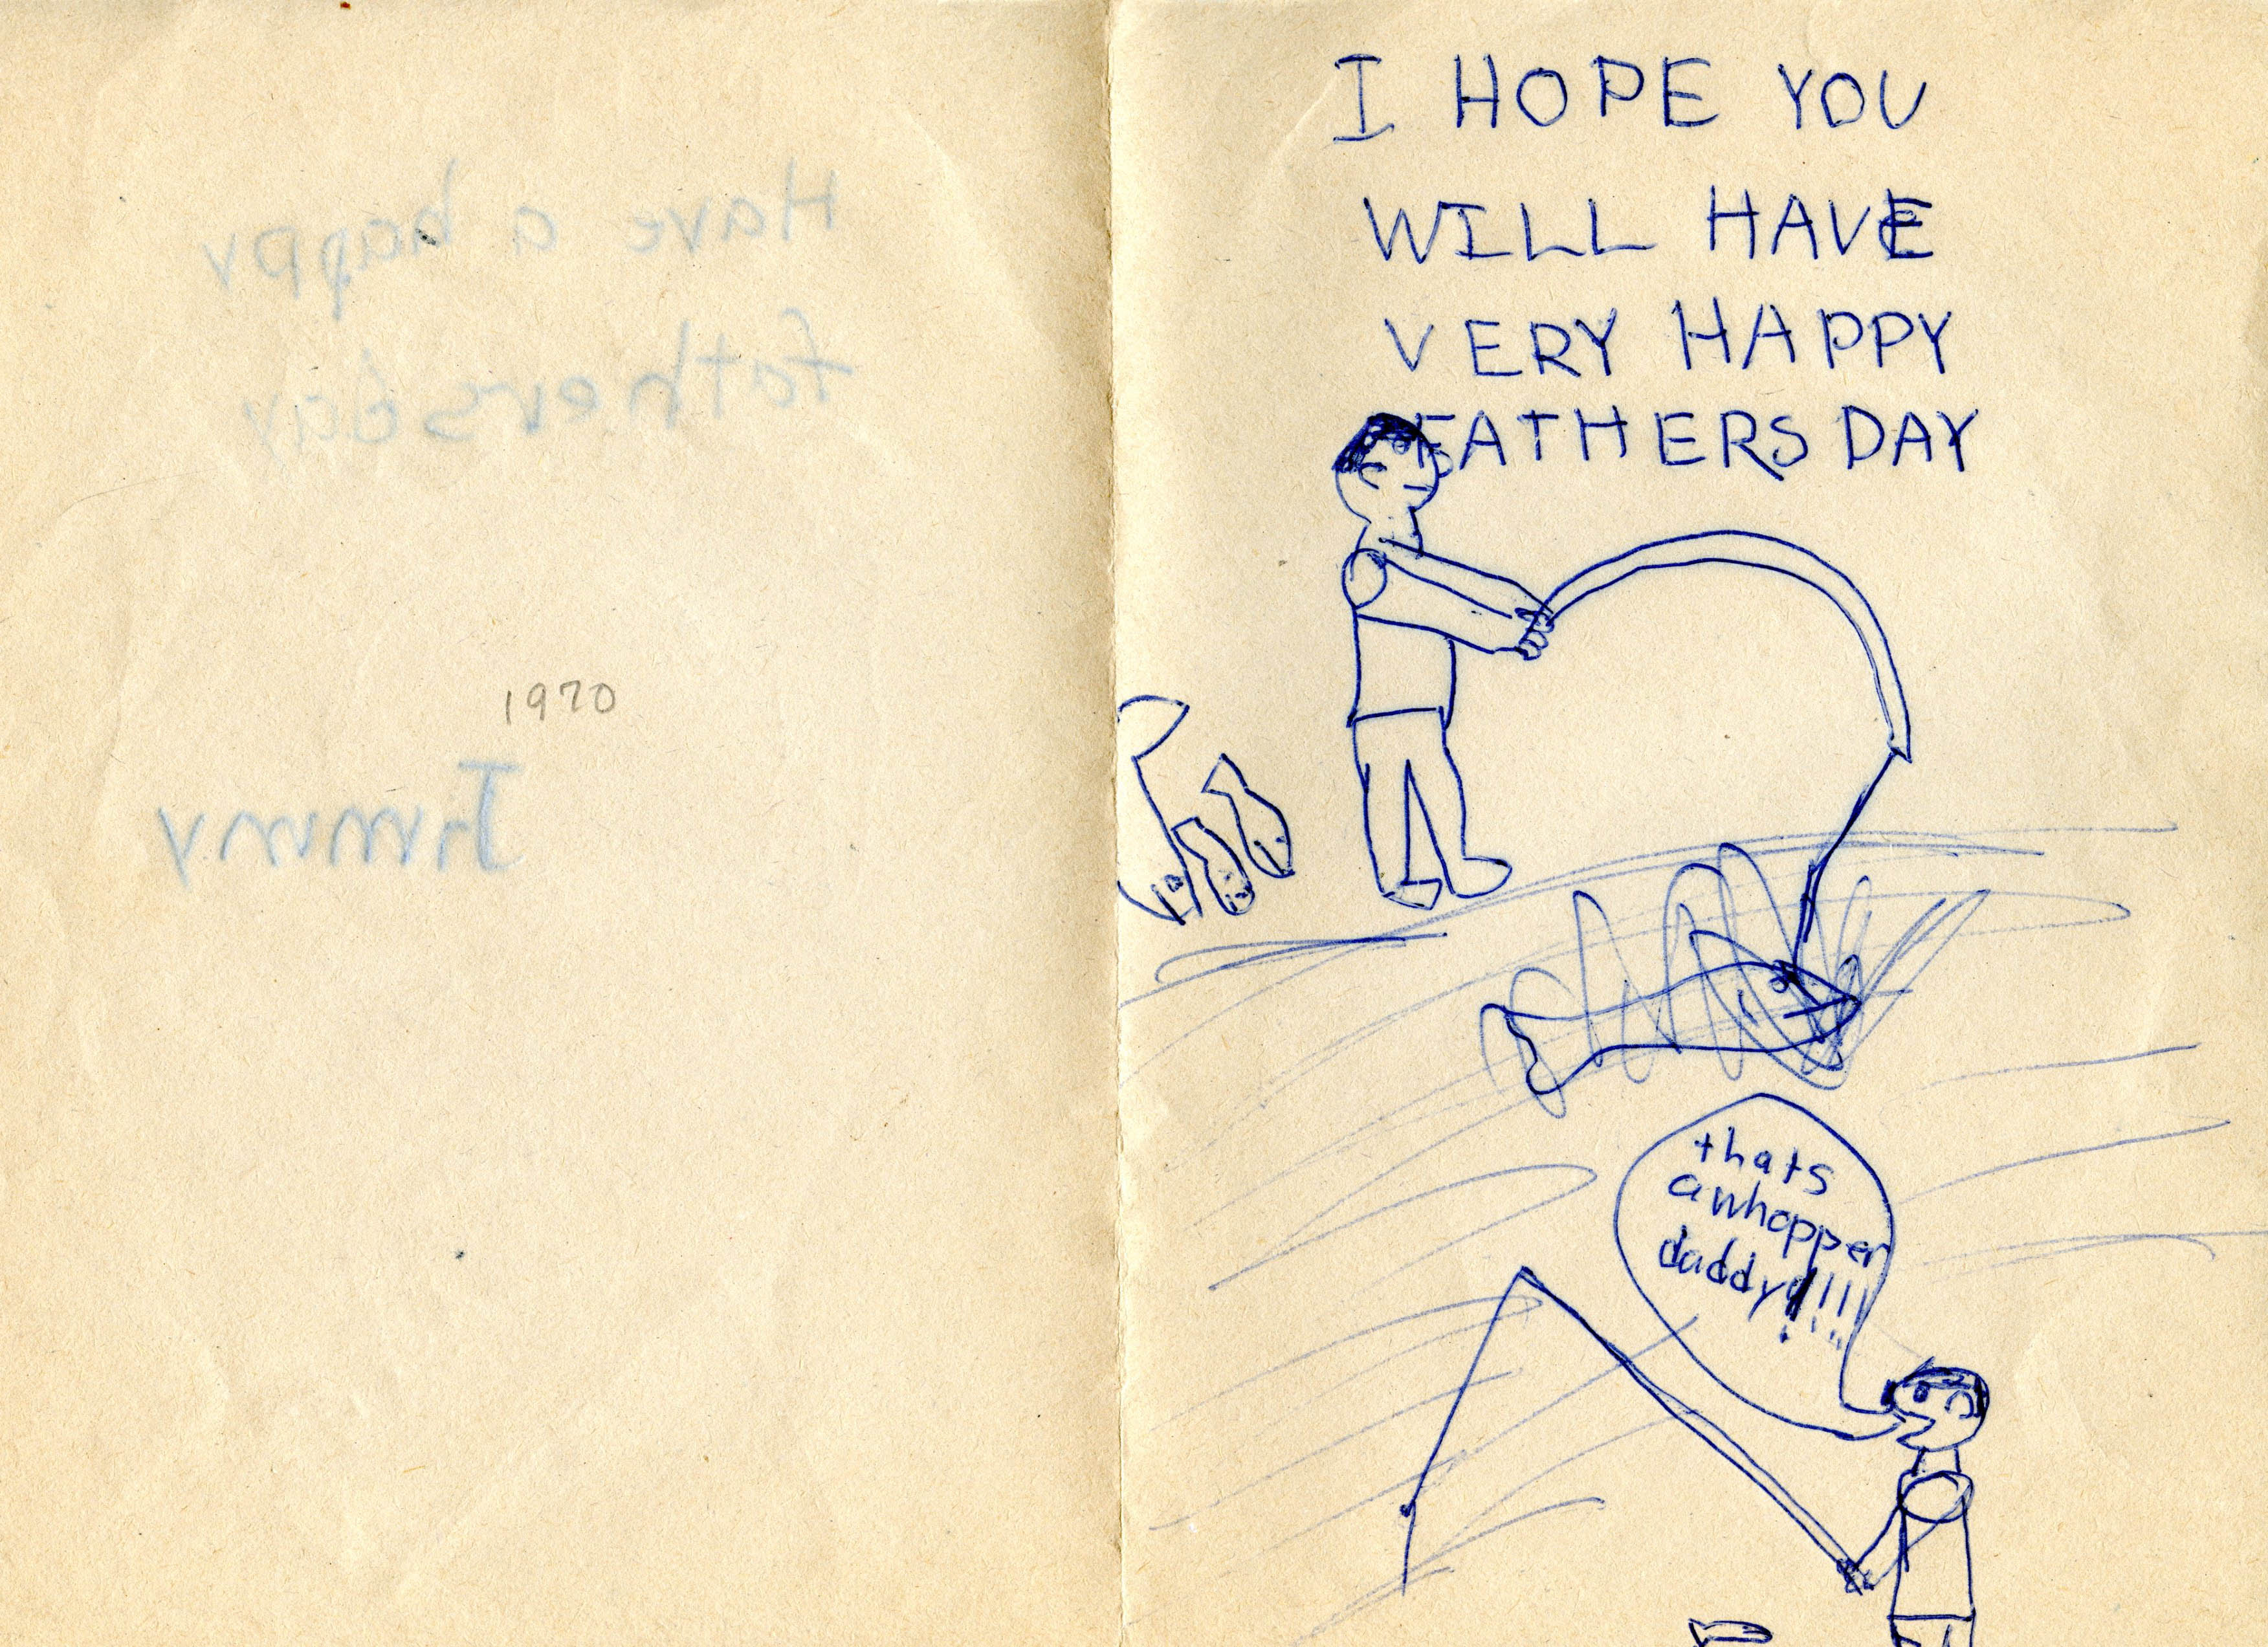 Have a happy
fathersday
1970
Jimmy
I HOPE YOU
WILL HAVE
VERY HAPPY
FATHERS DAY
thats
a whopper
daddy!!!!